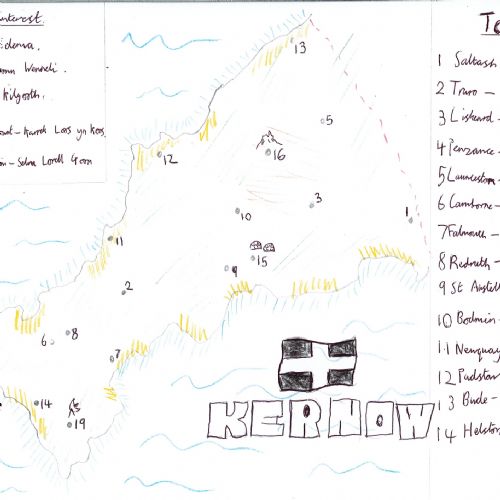 Interest
Kilgooth.
Karrek Loos yn Koos.
Goon
Te
1 Saltash
2 Truro -
3 Liskeard -
4 Penzance -
5 Launceston -
6 Camborne -
7 Falmouth -
8 Redruth -
9 St Austell
10 Bodmin -
11 Newquay
12 Padstow
13 Bude -
14 Helston
13
5
12
16
3
10
1
11
15
9
2
6
8
7
14
19
KERNOW